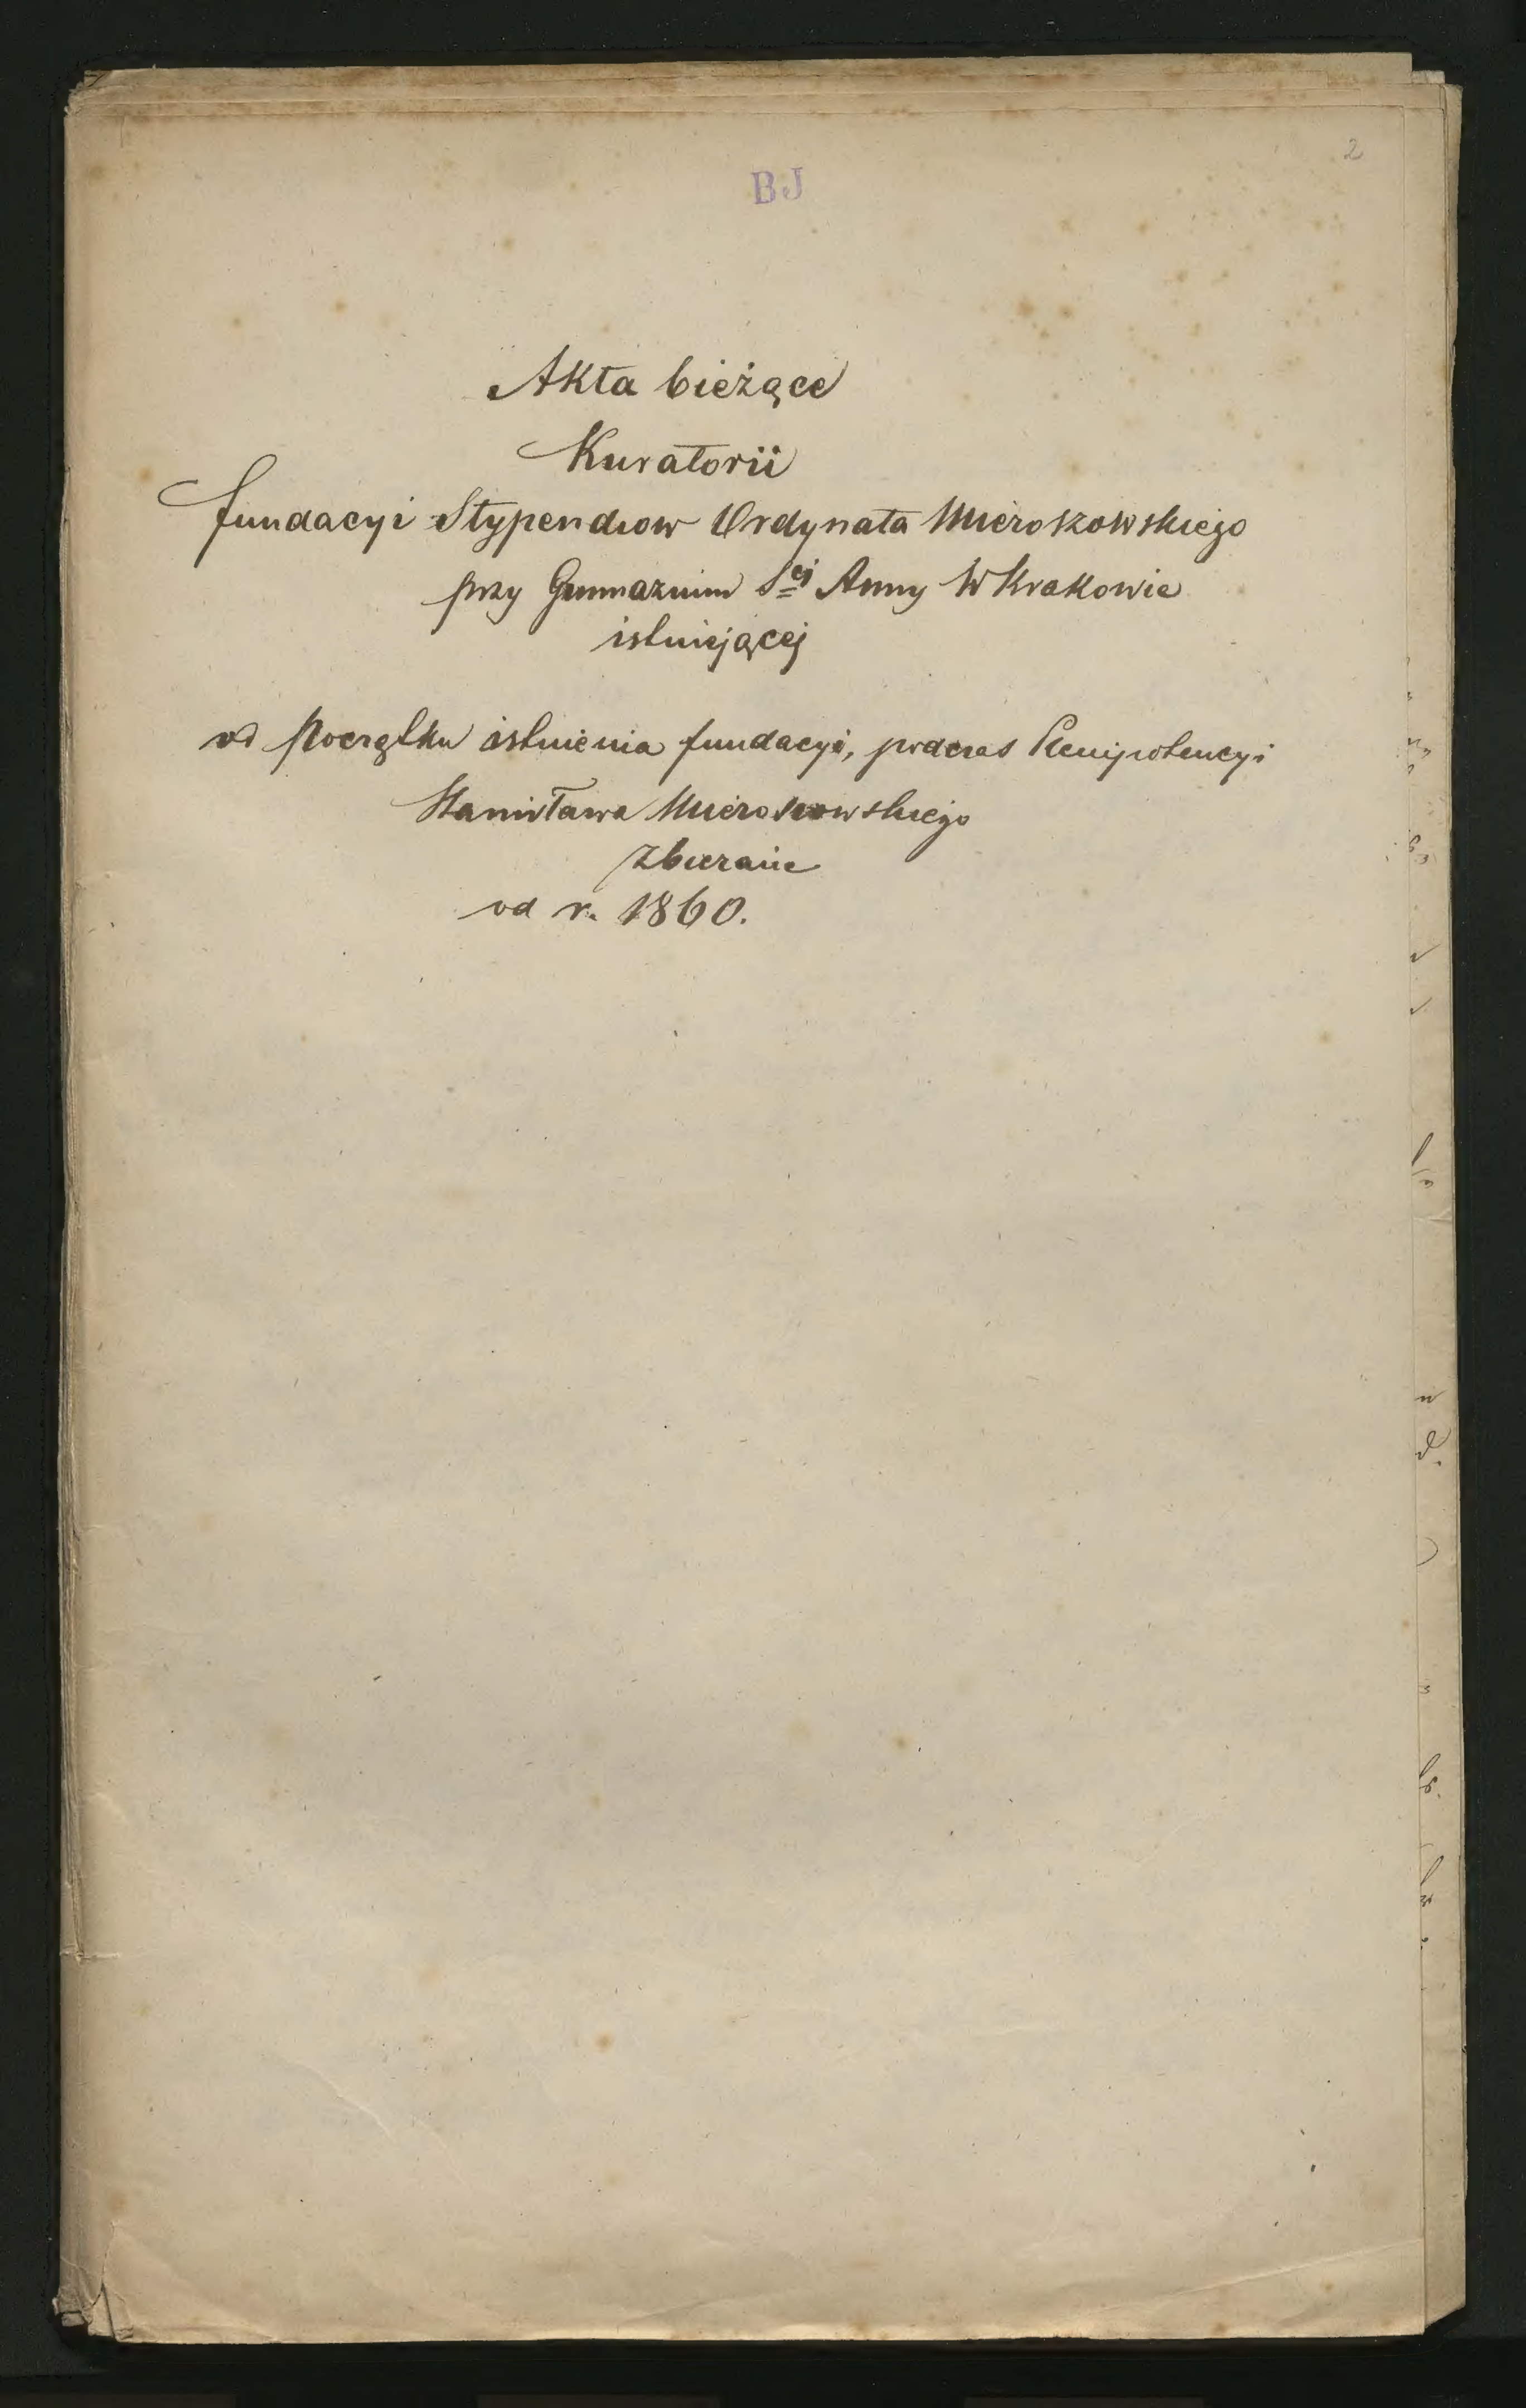 2
BJ
Akta bieżące
Kuratorii
fundacyi Stypendiow Ordynata Mieroszowskiego
przy Gimnazium S<sup>ej</sup> Anny w Krakowie
istniejącej
od Początku istnienia fundacyi, podczas Plenipotencyi
Stanisława Mieroszowskiego
zbierane
od r. 1860.